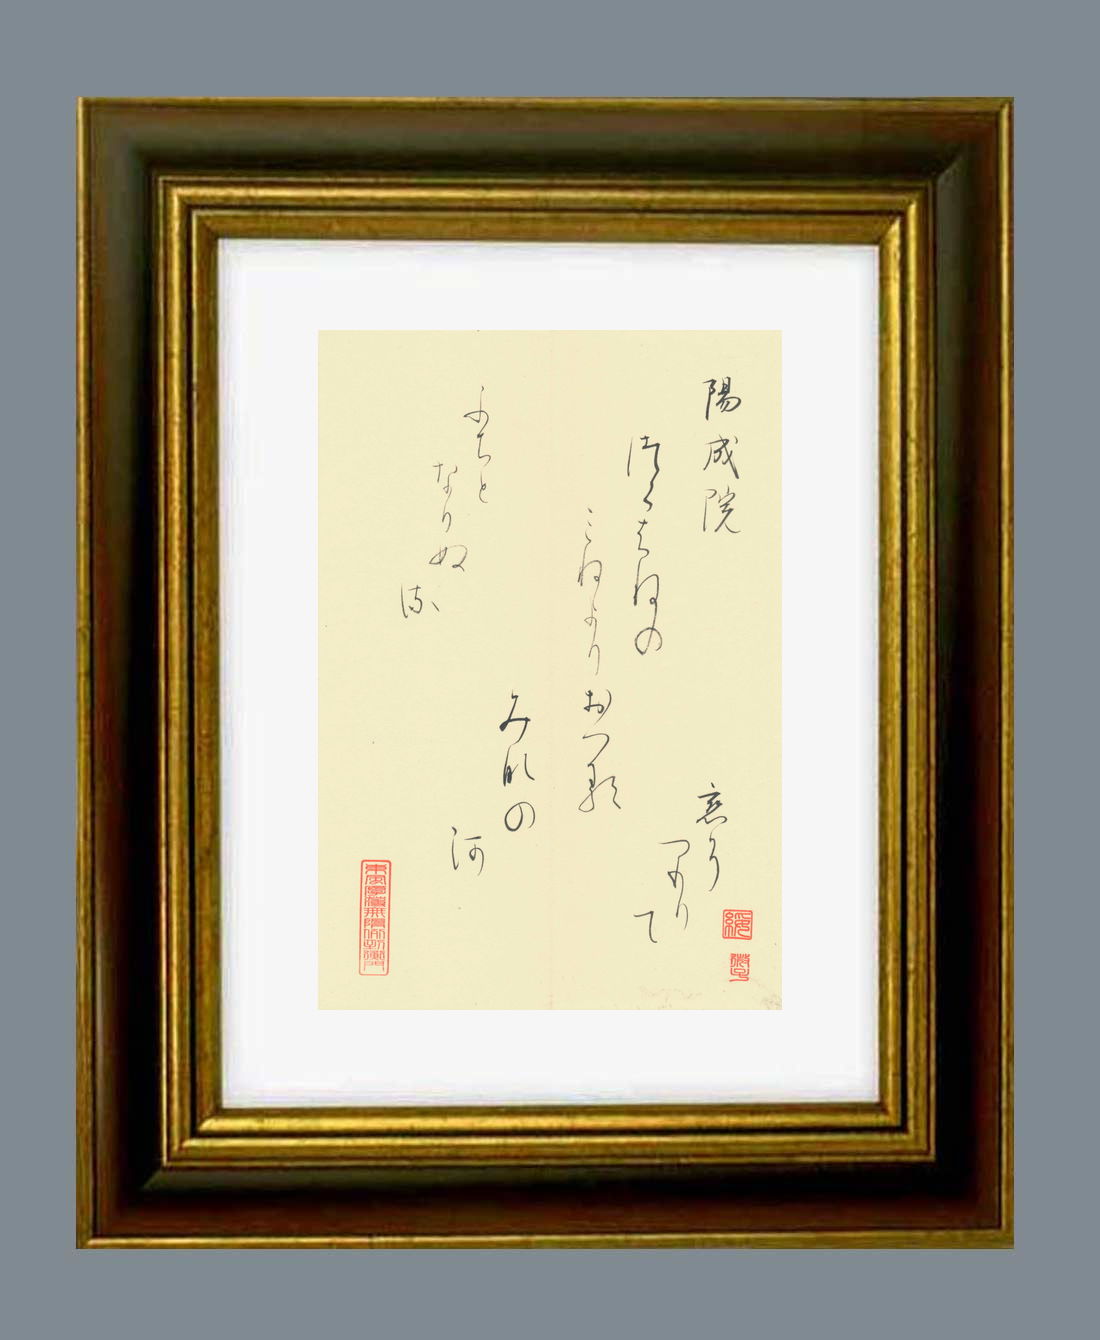 陽成院
つくはねの
みねよりおつる
みなの
河
恋そ
つもり
て
ふちと
なりぬ
る